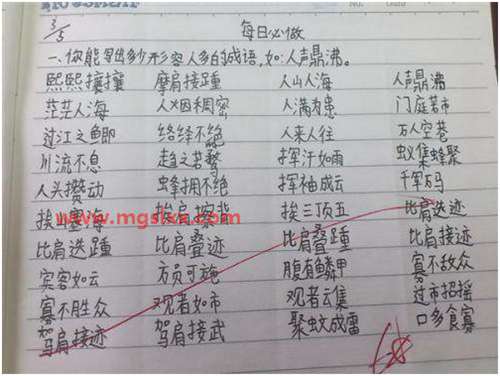 3/5 每日必做
一、你能写出多少形容人多的成语,如:人声鼎沸。
熙熙攘攘 摩肩接踵 人山人海 人声鼎沸
茫茫人海 人烟稠密 人满为患 门庭若市
过江之鲫 络绎不绝 人来人往 万人空巷
川流不息 趋之若鹜 挥汗如雨 蚁集蜂聚
人头攒动 蜂拥不绝 挥袖成云 千军万马
www.mgslxx.com 挨三顶五 比肩迭迹
比肩迭踵 比肩叠迹 比肩叠踵 比肩接迹
宾客如云 方员可施 腹有鳞甲 寡不敌众
寡不胜众 观者如市 观者云集 过市招摇
驾肩接迹 驾肩接武 聚蚊成雷 口多食寡